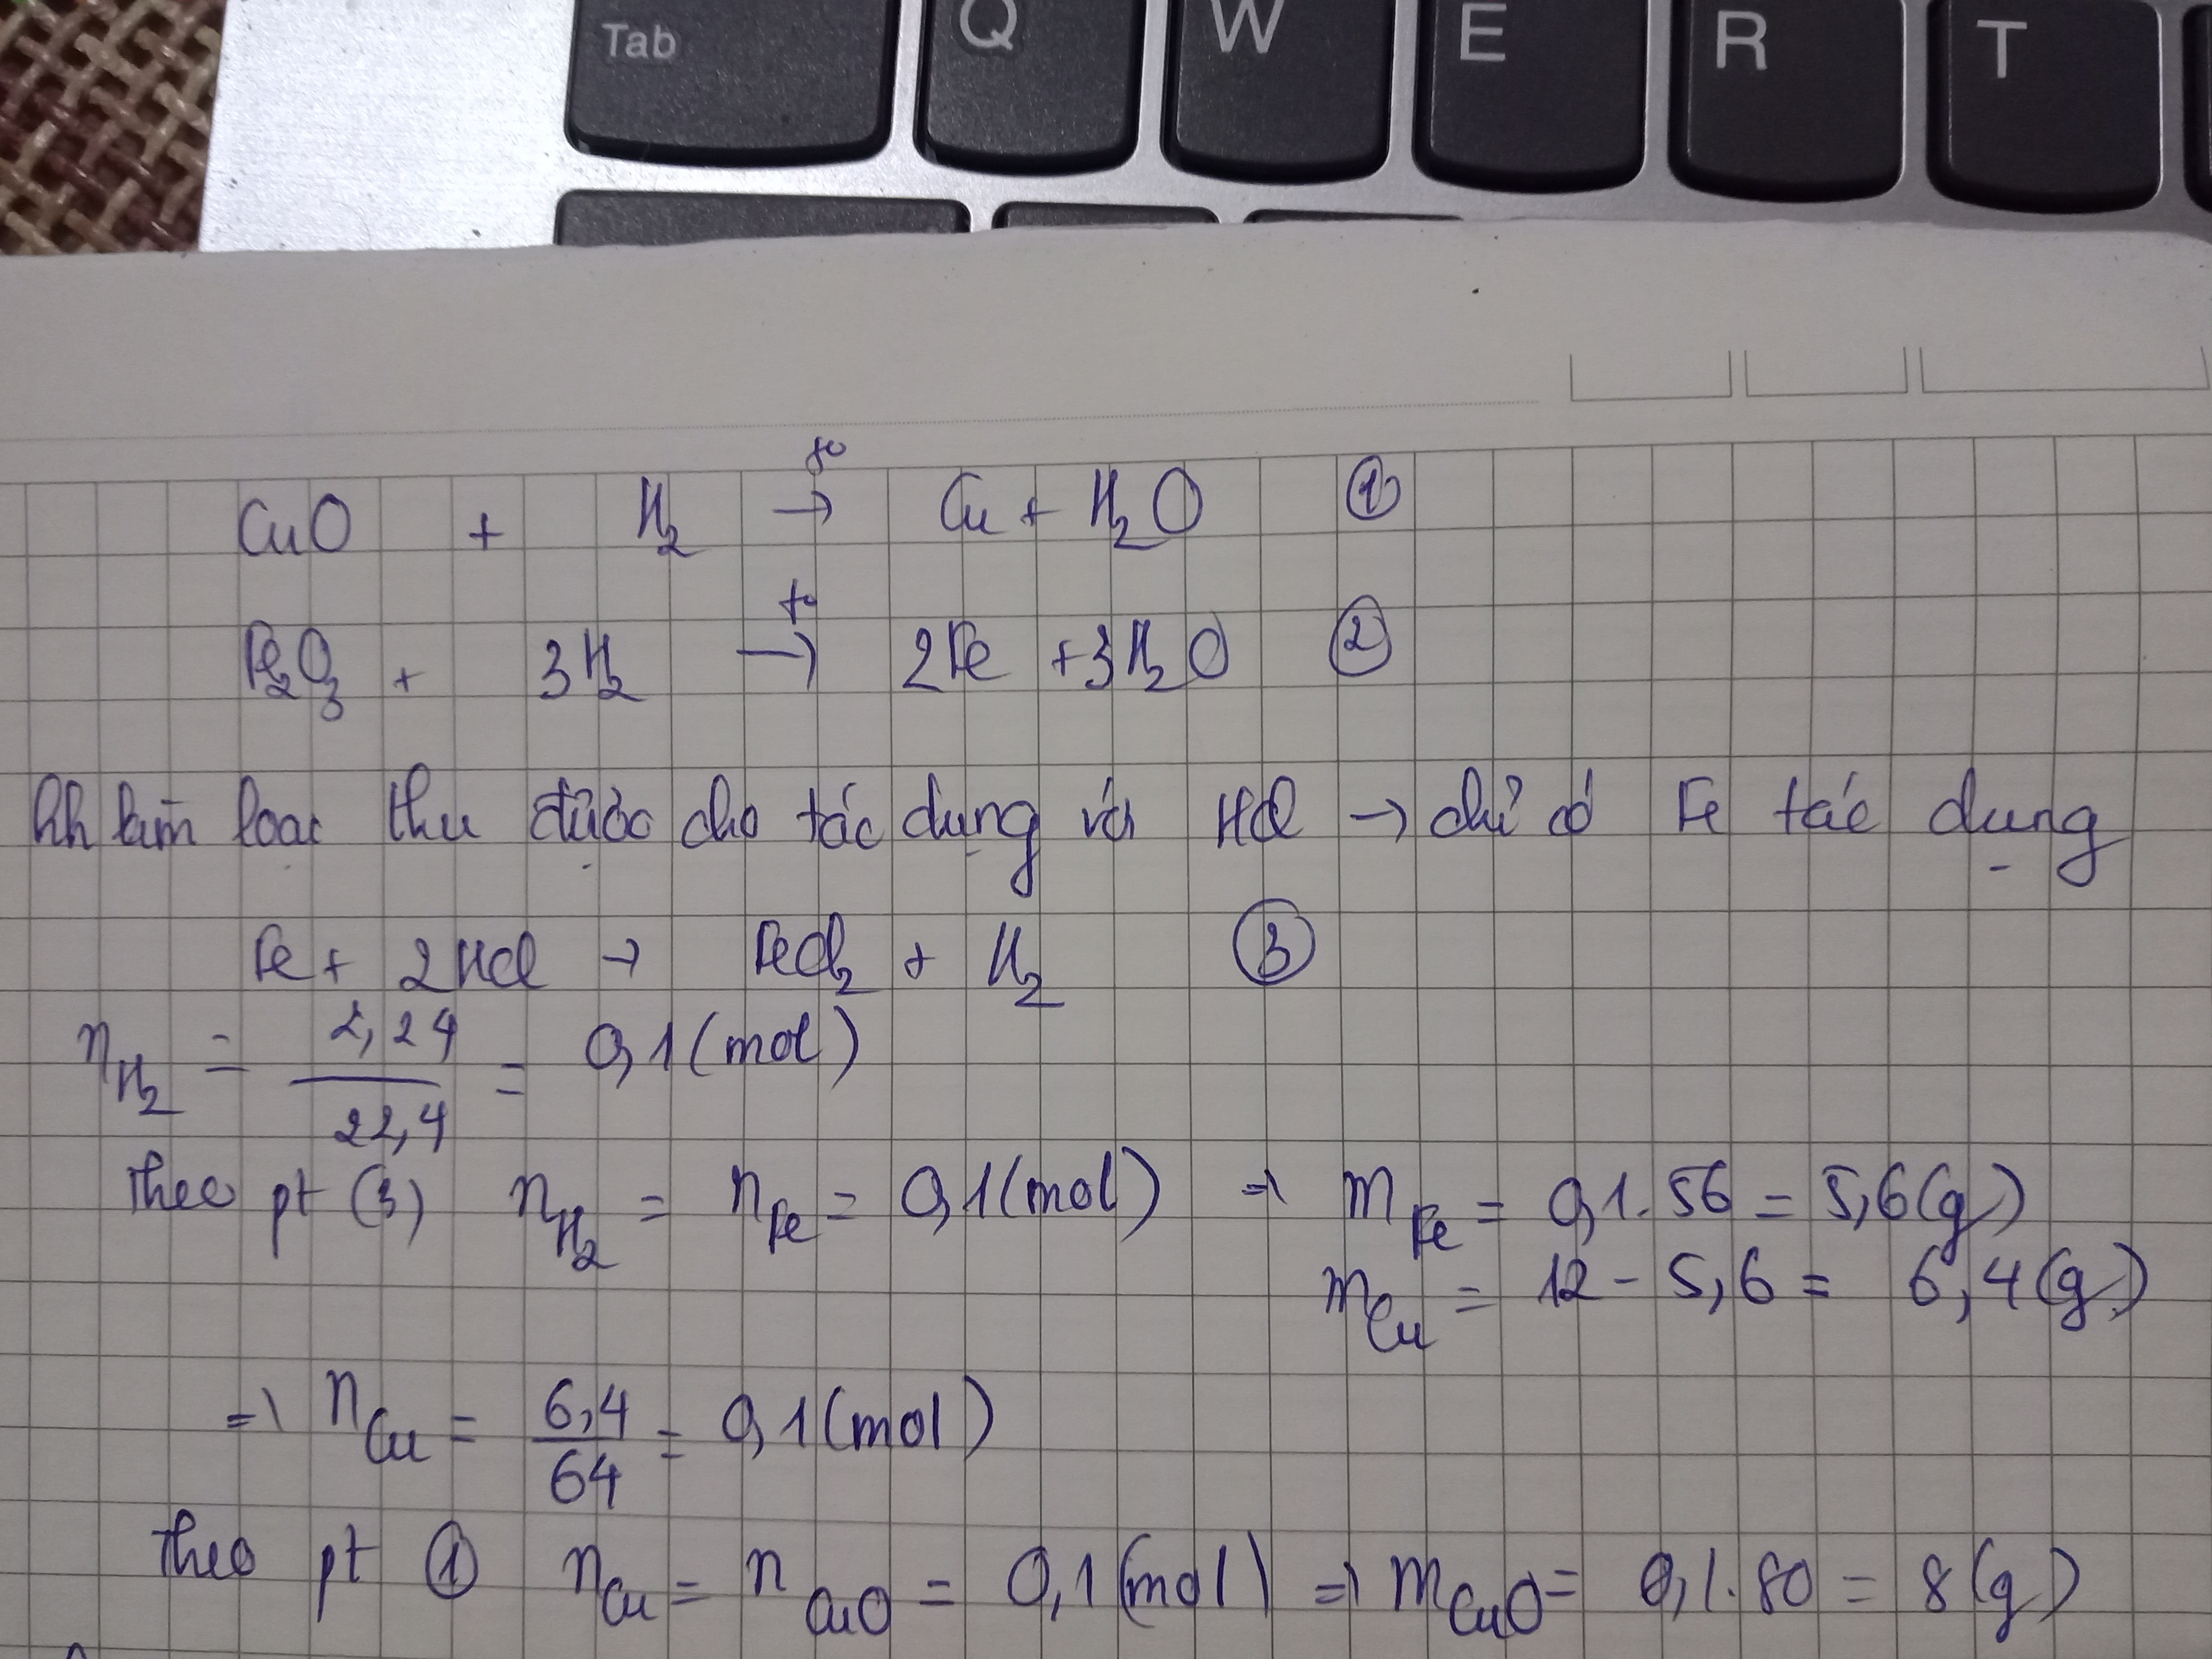 Tab Q W E R T
CuO + H₂ →(t°) Cu + H₂O ①
Fe₂O₃ + 3H₂ →(t°) 2Fe + 3H₂O ②
hh kim loại thu được cho tác dụng với HCl → chỉ có Fe tác dụng
Fe + 2HCl → FeCl₂ + H₂ ③
n_H₂ = 2,24/22,4 = 0,1 (mol)
Theo pt (3) n_H₂ = n_Fe = 0,1 (mol) ⇒ m_Fe = 0,1.56 = 5,6 (g)
m_Cu = 12 - 5,6 = 6,4 (g)
⇒ n_Cu = 6,4/64 = 0,1 (mol)
Theo pt ① n_Cu = n_CuO = 0,1 (mol) ⇒ m_CuO = 0,1.80 = 8 (g)